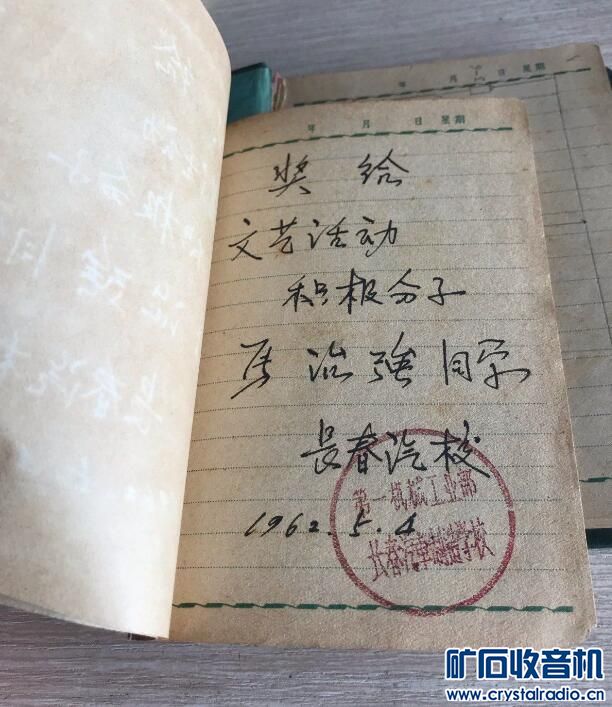 年 月 日 星期
年 月 日 星期
奖 给
文艺活动
积极分子
治强 同学
长春汽校
1962.5.4
第一机械工业部
长春汽车制造学校
矿石收音机
www.crystalradio.cn